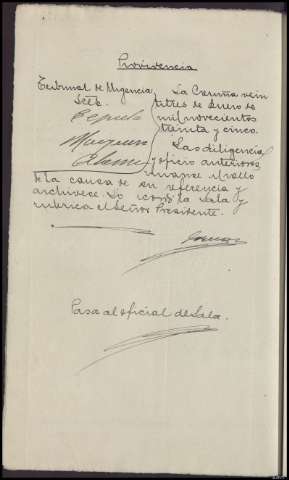 Providencia
Tribunal de Urgencia
Sres.
La Coruña vein
titres de Enero de
mil novecientos
treinta y cinco.
Las diligencias
y oficio anteriores
unanse al rollo
de la causa de su referencia y
archivese. Lo acordó la Sala y
rubrica el Señor Presidente.
Pasa al oficial de Sala.